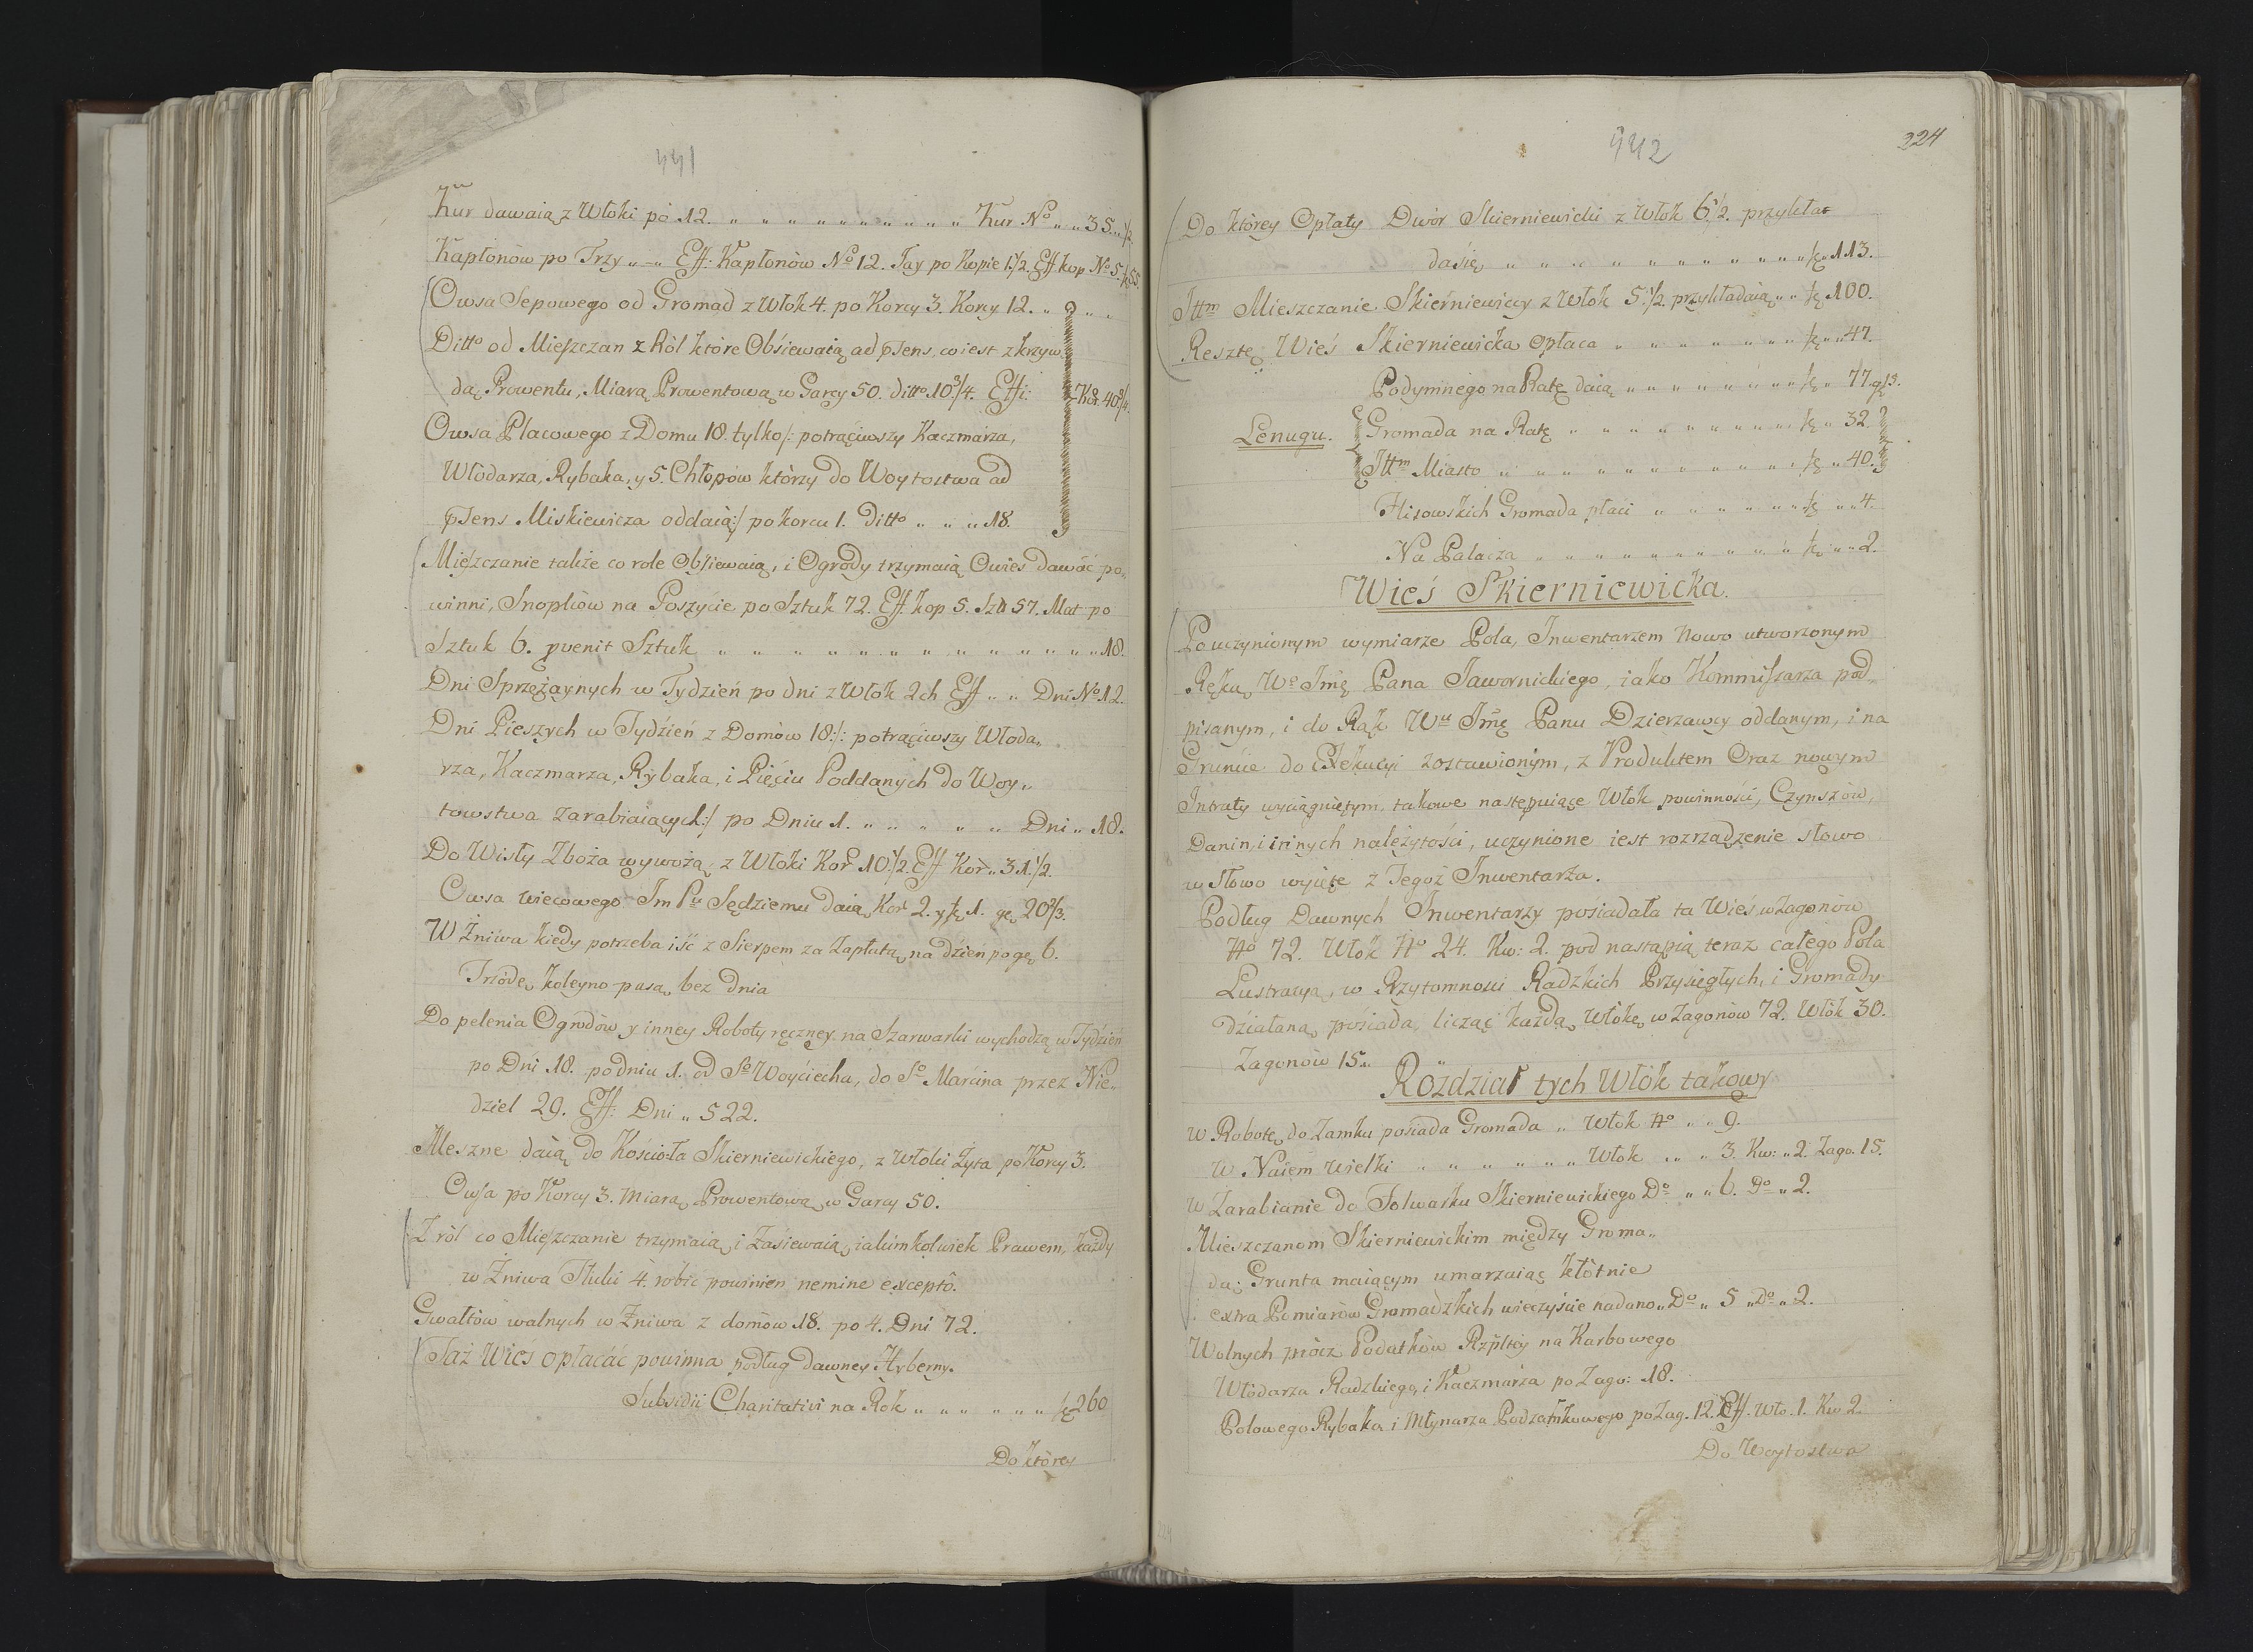 441
Kur dawaią z Włoki po 12. „ „ „ „ „ „ „ „ „ „ „ Kur No „ „ 35. „ 1/2.
Kapłonów po Trzy „ — „ Eff: Kapłonów No 12. Jay po Kopie 1 1/2. Eff kop No 5.
Owsa Sepowego od Gromad z Włok 4. po Korcy 3. Korcy 12. „ „ „
Ditto od Mieszczan z Ról które Obsiewaią ad pſens, co iest z krzyw„
dą Prowentu, Miarą Prowentową w Garcy 50. ditto 10 3/4. Effi: Kor. 40 3/4.
Owsa Placowego z Domu 18. tylko /: potrąciwszy Kaczmarza,
Włodarza, Rybaka, y 5. Chłopów którzy do Woytostwa ad
pſens Miskiewicza oddaią :/ po korcu 1. ditto „ „ „ 18.
Mieszczanie także co role Obsiewaią, i Ogrody trzymaią Owies dawać po„
winni, Snopków na Poszycie po Sztuk 72. Eff. kop 5. Szt 57. Mat po
Sztuk 6. pvenit Sztuk „ „ „ „ „ „ „ „ „ „ „ „ 18.
Dni Sprzężaynych w Tydzień po dni z Włok 2ch Eff „ „ Dni No 12.
Dni Pieszych w Tydzień z Domów 18 :/: potrąciwszy Włoda„
rza, Kaczmarza, Rybaka, i Pięciu Poddanych do Woy„
towstwa zarabiaiących :/ po Dniu 1. „ „ „ „ „ Dni „ 18.
Do Wisły Zboża wywożą z Włoki Kor 10 1/2. Eff Kor „ 31 1/2.
Owsa wiecowego Im Pu Sędziemu daią Kor 2. y 1. gę 20 2/3.
W Żniwa kiedy potrzeba iść z Sierpem za Zapłatą na dzień po gę 6.
Trzodę koleyno pasą bez dnia
Do pelenia Ogrodów y inney Roboty ręczney na Szarwarki wychodzą w Tydzień
po Dni 18. po dniu 1. od So Woyciecha, do So Marcina przez Nie„
dziel 29. Eff: Dni „ 522.
Meszne daią do Kościoła Skierniewickiego, z Włoki Żyta po Korcy 3.
Owsa po Korcy 3. Miarą Prowentową w Garcy 50.
Z ról co Mieszczanie trzymaią i Zasiewaią iakimkolwiek Prawem, każdy
w Żniwa Tłuki 4. robić powinien nemine exceptô.
Gwałtów walnych w Żniwa z domów 18. po 4. Dni 72.
Taż Wieś opłacać powinna podług dawney Hyberny.
Subsidii Charitativi na Rok „ „ „ „ „ „ 260
Do którey
442
224
Do którey Opłaty Dwór Skierniewicki z Włok 6 1/2. przykła„
da się „ „ „ „ „ „ „ „ „ „ „ „ 113.
Ittm Mieszczanie Skierniewiccy z Włok 5 1/2. przykładaią „ „ 100.
Resztę Wieś Skierniewicka opłaca „ „ „ „ „ „ „ 47.
Podymnego na Ratę daią „ „ „ „ „ „ „ „ 77.
Lenugu. Gromada na Ratę „ „ „ „ „ „ „ „ „ 32.
Ittm Miasto „ „ „ „ „ „ „ „ „ „ 40.
Hisowskich Gromada płaci „ „ „ „ „ „ „ 4.
Na Palacza „ „ „ „ „ „ „ „ „ „ 2.
Wieś Skierniewicka.
Po uczynionym wymiarze Pola, Inwentarzem Nowo utworzonym
Ręką We Jmę Pana Jawornickiego, iako Kommissarza pod„
pisanym, i do Rąk Wu Jmę Panu Dzierzawcy oddanym, i na
Gruncie do Exekucyi zostawionym, z Produktem Oraz nowym
Intraty wyciągniętym, takowe następuiące Włok powinności, Czynszów,
Danin, i innych należytości, uczynione iest rozrządzenie słowo
w Słowo wyięte z Tegoż Inwentarża.
Podług Dawnych Inwentarzy posiadała ta Wieś w Zagonów
No 72. Włok No 24. Kw: 2. pod nastąpią teraz całego Pola
Lustracyą, w Przytomności Radzkich Przysięgłych, i Gromady
działaną, pośiada licząc każdą Włokę w Zagonów 72. Włok 30.
Zagonów 15.
Rozdział tych Włók takowy
W Robotę do Zamku pośiada Gromada „ Włok No „ „ 9.
W Naiem Wielki „ „ „ „ „ „ Włok „ „ 3. Kw: „ 2. Zago. 15.
W Zarabianie do Folwarku Skierniewickiego Do „ „ 6. Do „ 2.
Mieszczanom Skierniewickim między Groma„
dą Grunta maiącym umarzaiąc kłótnie
extra Pomiarów Gromadzkich wieczyście nadano „ Do „ 5 „ Do „ 2.
Wolnych prócz Podatków Rzpltey na Karbowego
Włodarza Radzkiego, i Kaczmarza po Zago: 18.
Polowego Rybaka i Młynarza Podzamkowego po Zag. 12. Eff. Wło. 1. Kw 2.
Do Woytostwa